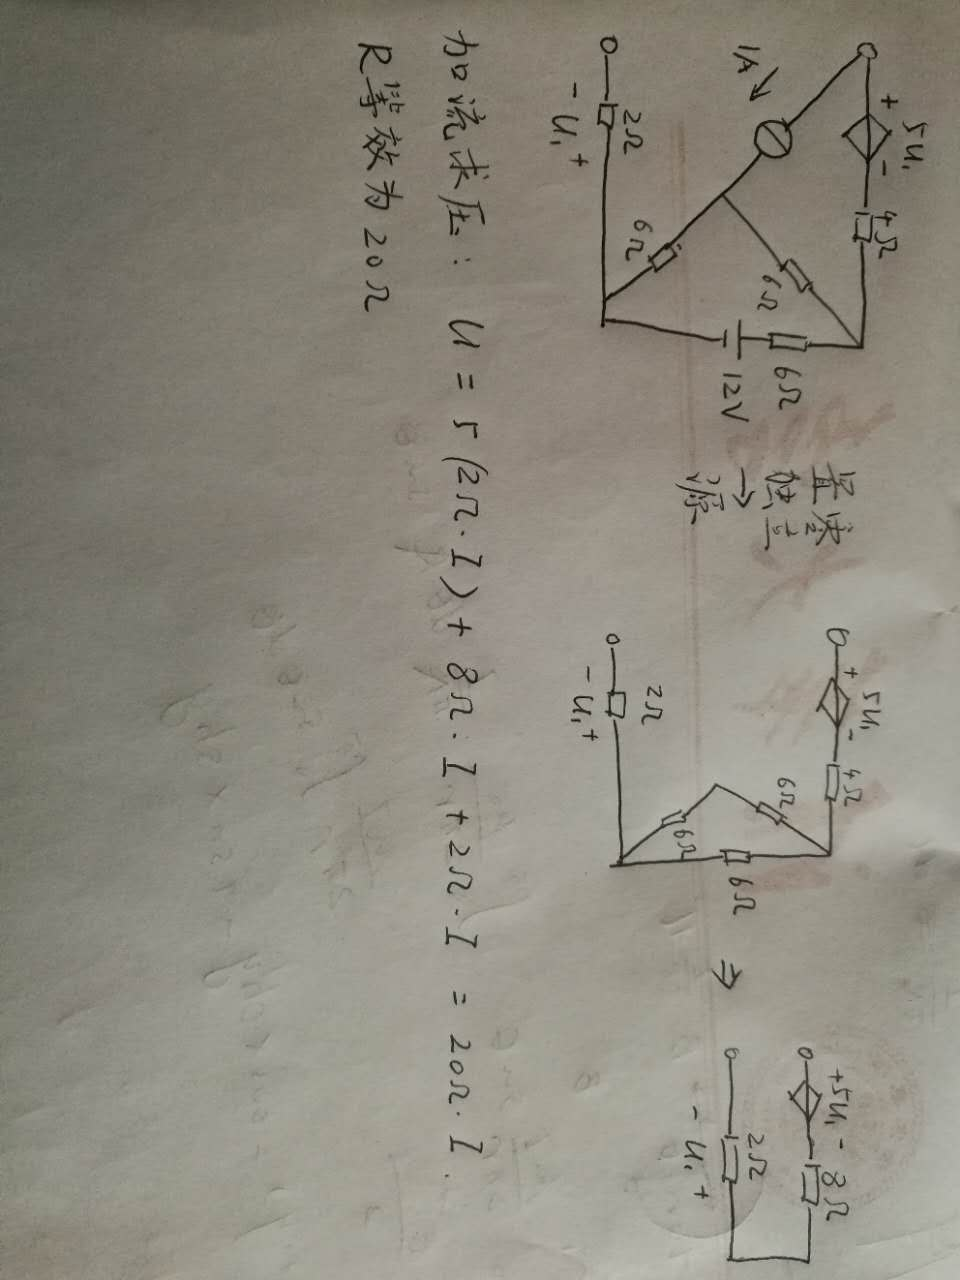 + 5U₁ -
4Ω
1A
6Ω
6Ω
6Ω
12V
2Ω
- U₁ +
置零
独立
→
源
+ 5U₁ -
4Ω
6Ω
6Ω
6Ω
2Ω
- U₁ +
⇒
+5U₁ -
8Ω
2Ω
- U₁ +
加流求压: U = 5(2Ω·I) + 8Ω·I + 2Ω·I = 20Ω·I.
R等效为20Ω